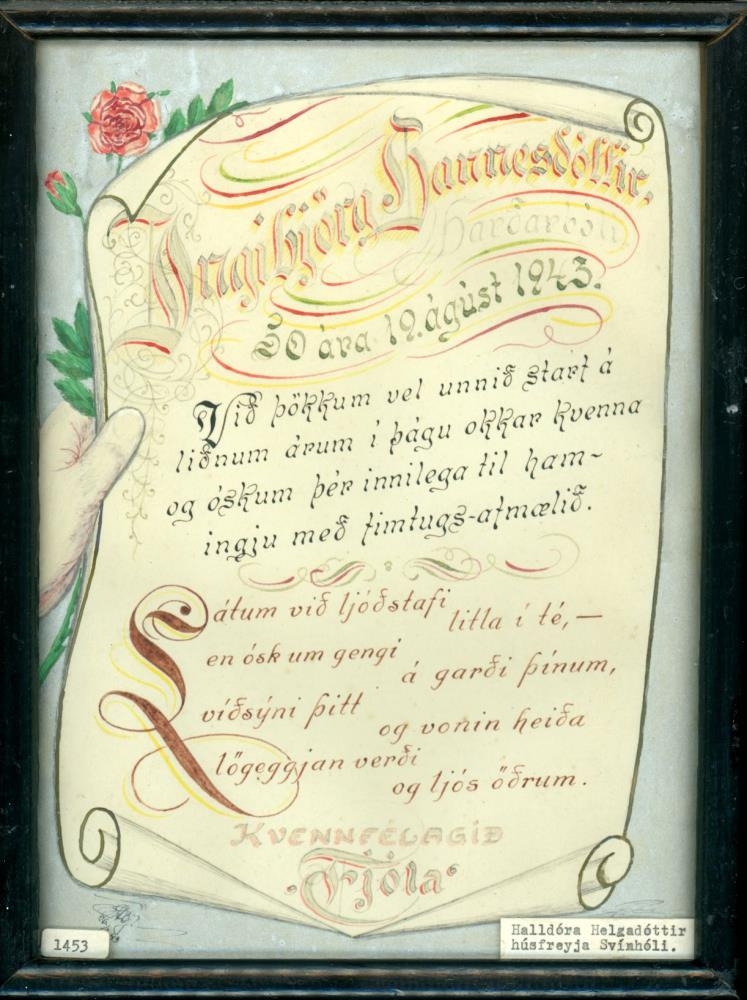 Ingibjörg Hannesdóttir,
Harðarbóli
50 ára 19. ágúst 1943.
Við þökkum vel unnið starf á
liðnum árum í þágu okkar kvenna
og óskum þér innilega til ham-
ingju með fimtugs-afmælið.
Látum við ljóðstafi litla í té,—
en ósk um gengi á garði þínum,
víðsýni þitt og vonin heiða
lögeggjan verði og ljós öðrum.
KVENNFÉLAGIÐ
"Fjóla"
1453
Halldóra Helgadóttir
húsfreyja Svínhóli.